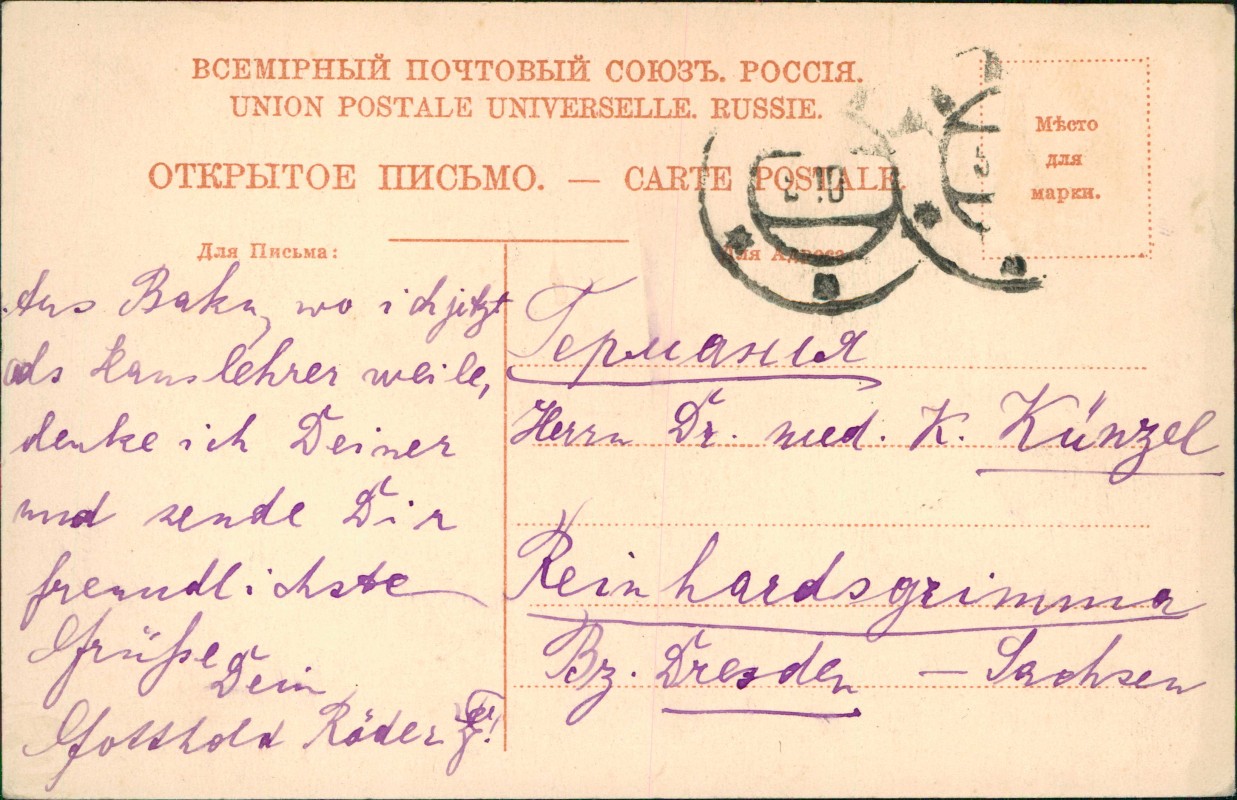 ВСЕМІРНЫЙ ПОЧТОВЫЙ СОЮЗЪ. РОССІЯ.
UNION POSTALE UNIVERSELLE. RUSSIE.
ОТКРЫТОЕ ПИСЬМО. — CARTE POSTALE.
Мѣсто
для
марки.
10
Для Письма:
Для Адреса
Aus Baku, wo ich jetzt
als Hauslehrer weile,
denke ich Deiner
und sende Dir
freundlichste
Grüße
Dein
Gotthold Röder
Германия
Herrn Dr. med. K. Künzel
Reinhardsgrimma
Bz. Dresden — Sachsen